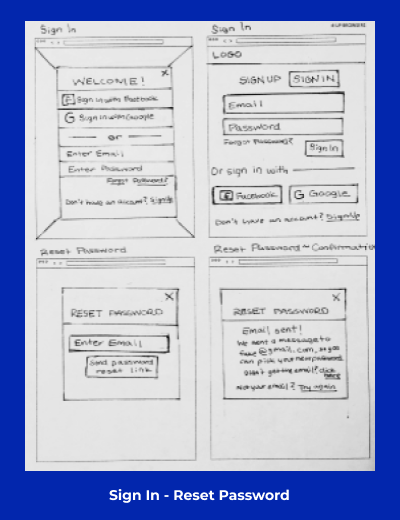 Sign In
WELCOME!
X
Sign in with Facebook
G Sign in with Google
or
Enter Email
Enter Password
Forgot Password?
Don't have an account? SignUp
Sign In
LOGO
SIGN UP SIGN IN
Email
Password
Forgot Password?
Sign In
Or sign in with
Facebook
G Google
Don't have an account? SignUp
Reset Password
X
RESET PASSWORD
Enter Email
Send password
reset link
Reset Password - Confirmation
X
RESET PASSWORD
Email sent!
We sent a message to
@gmail.com, so you
can pick your new password.
Didn't get the email? click
here
Not your email? Try again
Sign In - Reset Password